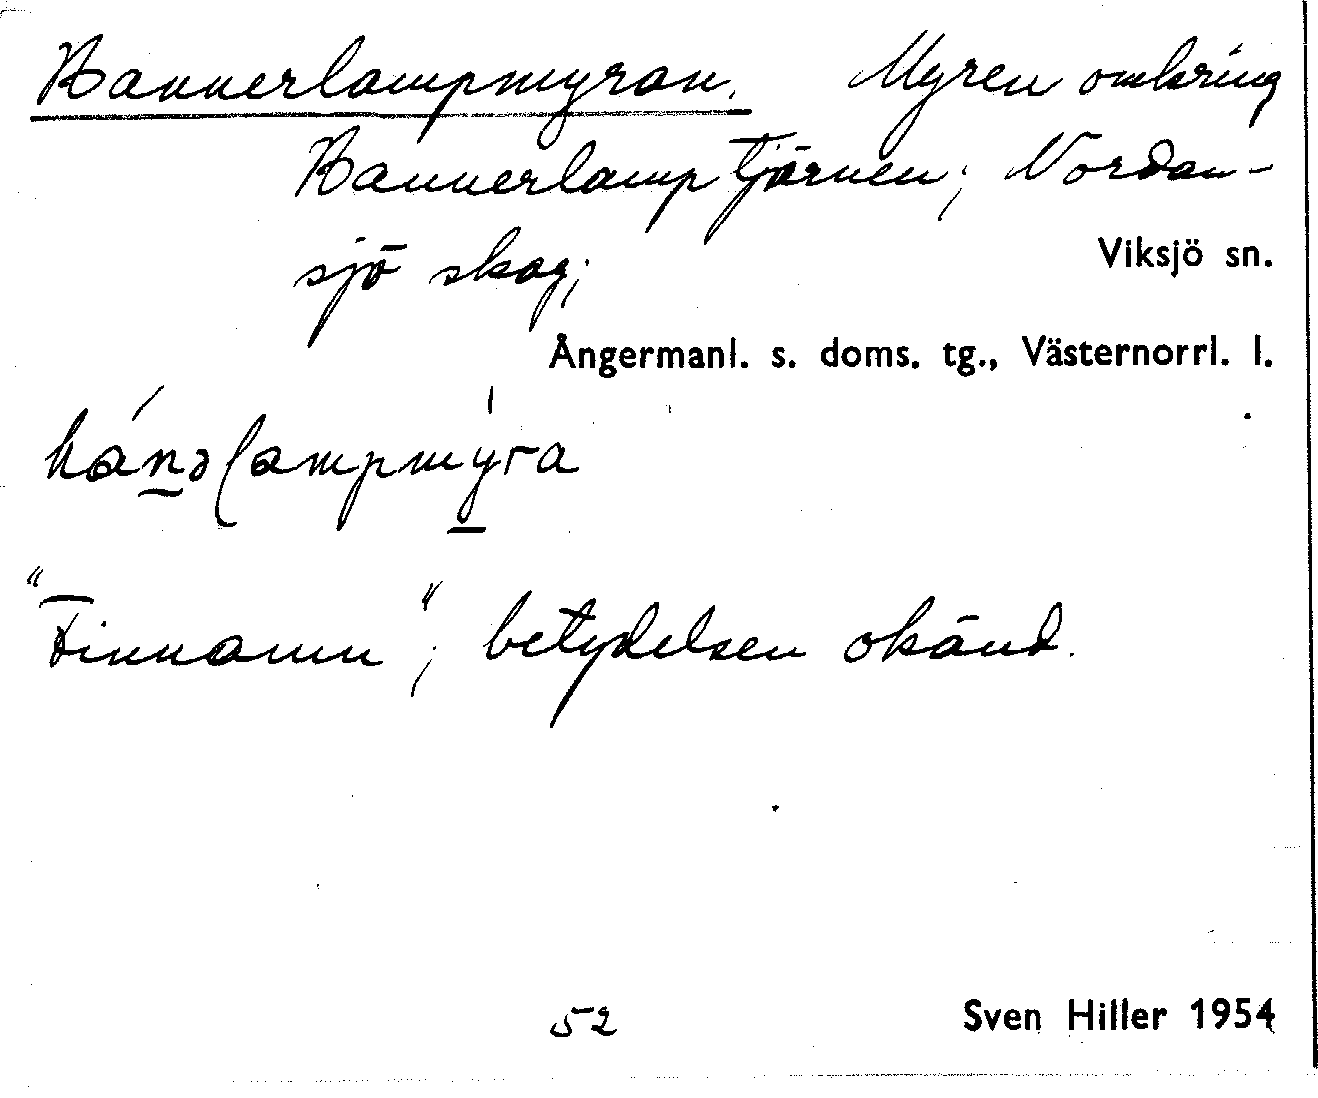 Kannerlampmyran. Myren omkring
Kannerlamptjärnen; Nordan-
sjö skog; Viksjö sn.
Ångermanl. s. doms. tg., Västernorrl. l.
kánəlampmýra
"Finnamn"; betydelsen okänd.
52 Sven Hiller 1954